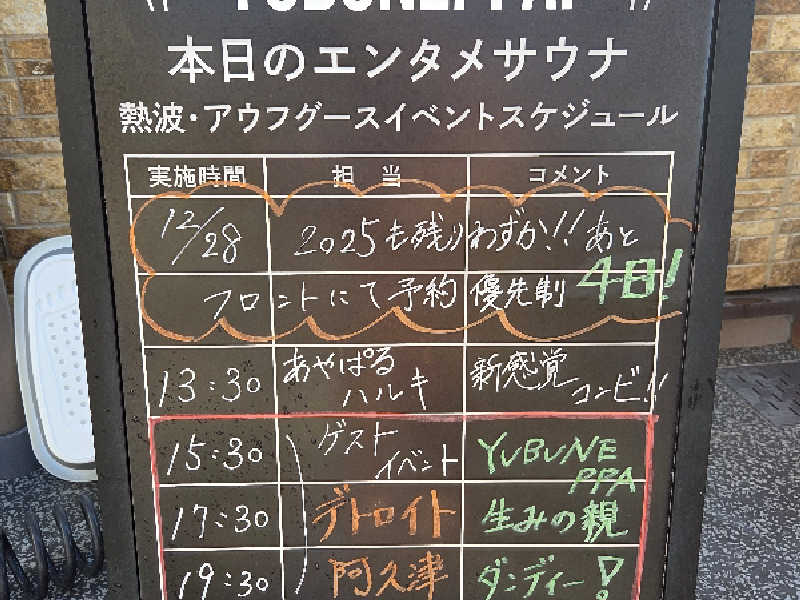 YUBUNEPPA!
本日のエンタメサウナ
熱波・アウフグースイベントスケジュール
実施時間 担当 コメント
12/28 2025も残りわずか!! あと
フロントにて予約 優先制 4日!
13:30 あやぱる ハルキ 新感覚 コンビ!!
15:30 ゲスト イベント YUBUNE PPA
17:30 デトロイト 生みの親
19:30 阿久津 ダンディー!